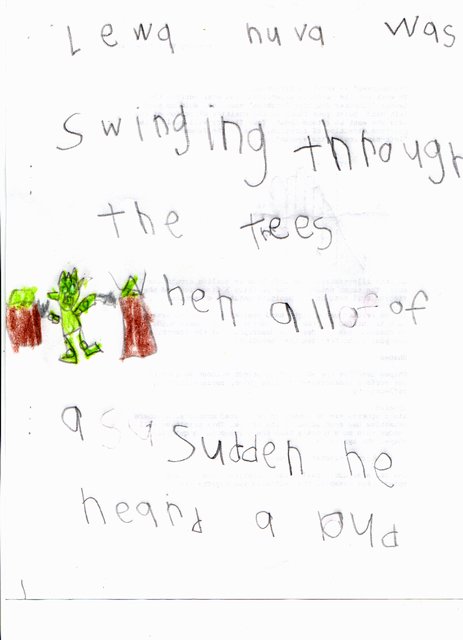 Lewa nuva was
Swinging through
the trees
When all of
a sudden he
heard a